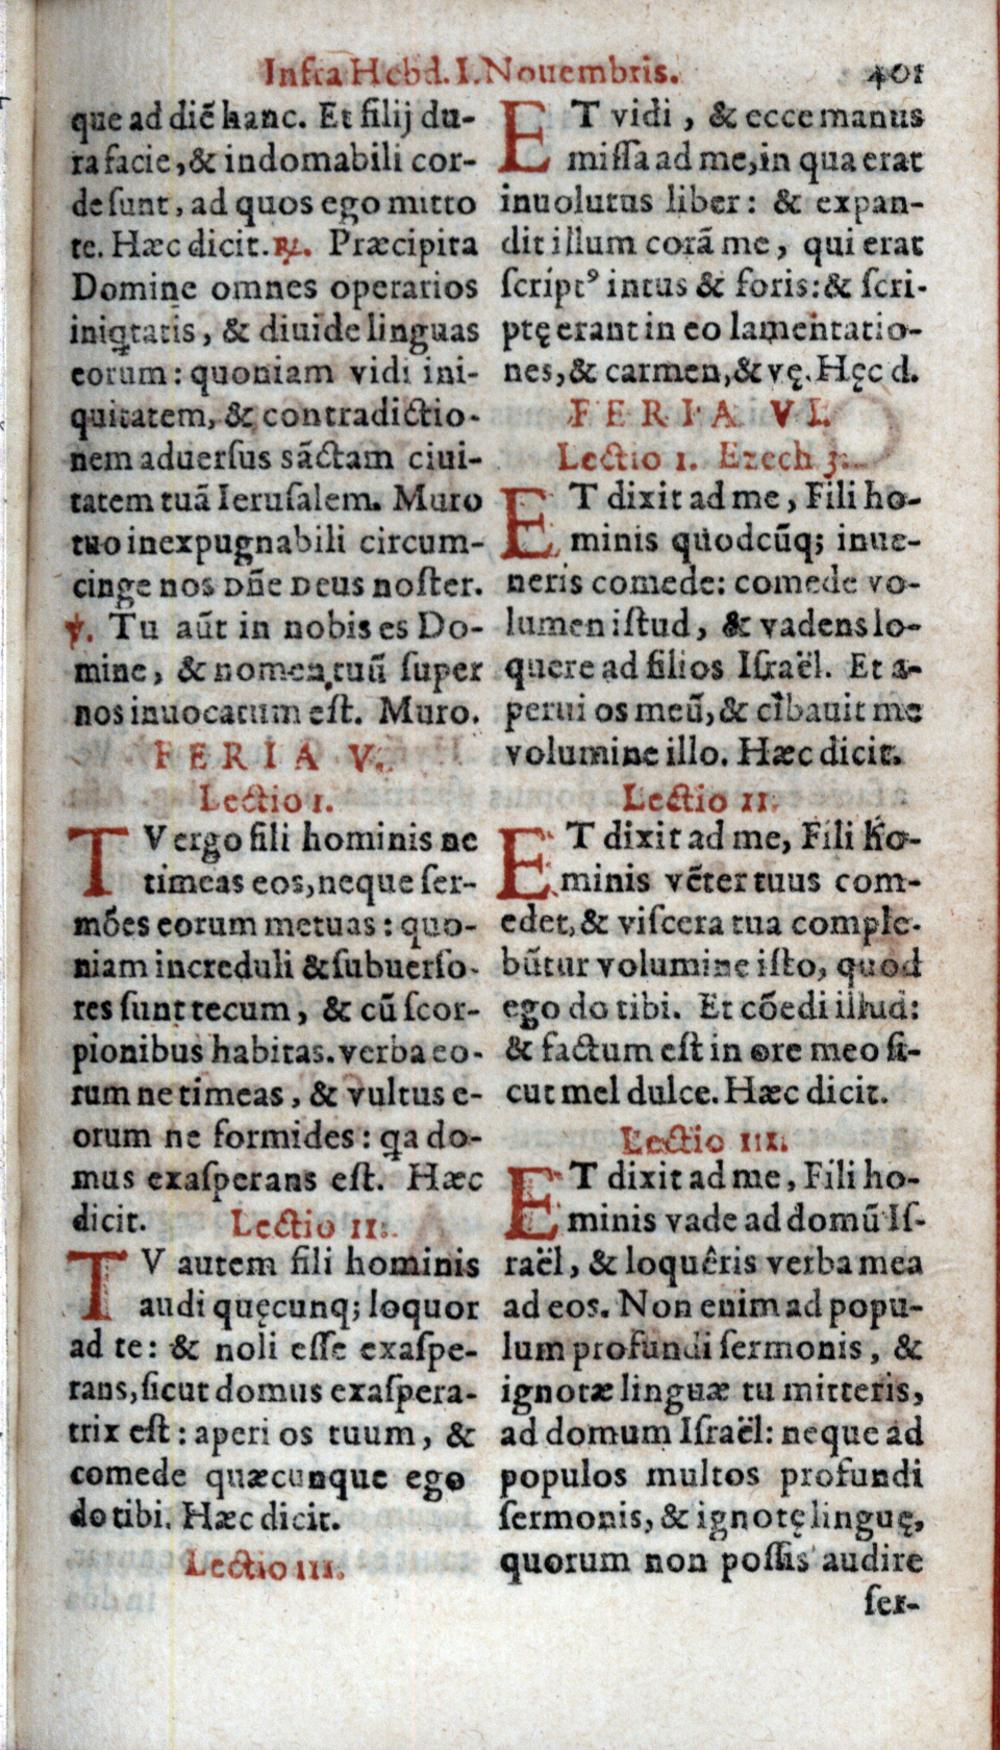 Infra Hebd. I. Nouembris. 401
que ad diē hanc. Et filij du-
ra facie, & indomabili cor-
de ſunt, ad quos ego mitto
te. Hæc dicit. ℟. Præcipita
Domine omnes operarios
iniq̃tatis, & diuide linguas
eorum: quoniam vidi ini-
quitatem, & contradictio-
nem aduerſus sāctam ciui-
tatem tuā Ieruſalem. Muro
tuo inexpugnabili circum-
cinge nos Dñe Deus noſter.
℣. Tu aūt in nobis es Do-
mine, & nomen tuū ſuper
nos inuocatum eſt. Muro.
FERIA V.
Lectio I.
TV ergo fili hominis ne
timeas eos, neque ſer-
mōes eorum metuas: quo-
niam increduli & ſubuerſo-
res ſunt tecum, & cū ſcor-
pionibus habitas. verba eo-
rum ne timeas, & vultus e-
orum ne formides: q̃a do-
mus exaſperans eſt. Hæc
dicit. Lectio II.
TV autem fili hominis
audi quęcunq; loquor
ad te: & noli eſſe exaſpe-
rans, ſicut domus exaſpera-
trix eſt: aperi os tuum, &
comede quæcunque ego
do tibi. Hæc dicit.
Lectio III.
ET vidi, & ecce manus
miſſa ad me, in qua erat
inuolutus liber: & expan-
dit illum corā me, qui erat
ſcriptꝰ intus & foris: & ſcri-
ptę erant in eo lamentatio-
nes, & carmen, & vę. Hęc d.
FERIA VI.
Lectio I. Ezech 3.
ET dixit ad me, Fili ho-
minis quodcūq; inue-
neris comede: comede vo-
lumen iſtud, & vadens lo-
quere ad filios Iſraël. Et a-
perui os meū, & cibauit me
volumine illo. Hæc dicit.
Lectio II.
ET dixit ad me, Fili ho-
minis vēter tuus com-
edet, & viſcera tua comple-
būtur volumine iſto, quod
ego do tibi. Et cōedi illud:
& factum eſt in ore meo ſi-
cut mel dulce. Hæc dicit.
Lectio III.
ET dixit ad me, Fili ho-
minis vade ad domū Iſ-
raël, & loquêris verba mea
ad eos. Non enim ad popu-
lum profundi ſermonis, &
ignotæ linguæ tu mitteris,
ad domum Iſraël: neque ad
populos multos profundi
ſermonis, & ignotę linguę,
quorum non poſſis audire
ſer-